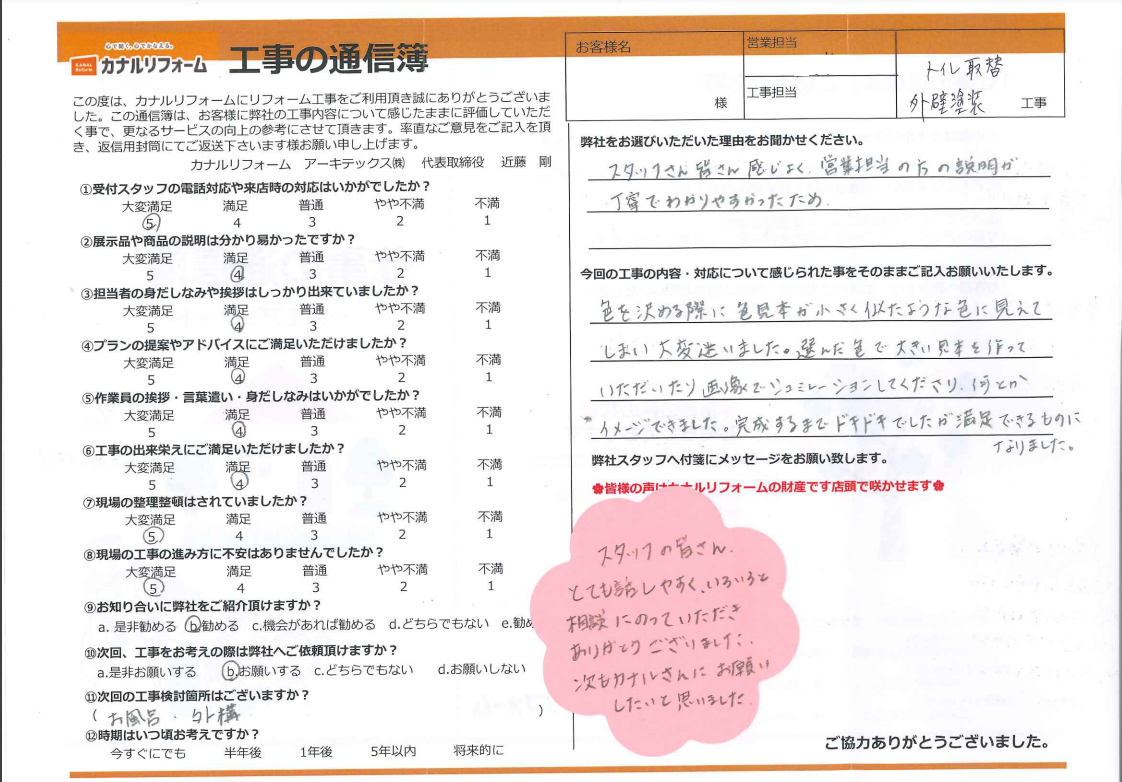 心で聴く、心でかなえる。
KANAL Reform カナルリフォーム 工事の通信簿
お客様名
様
営業担当
工事担当
トイレ取替
外壁塗装 工事
この度は、カナルリフォームにリフォーム工事をご利用頂き誠にありがとうございま
した。この通信簿は、お客様に弊社の工事内容について感じたままに評価していただ
く事で、更なるサービスの向上の参考にさせて頂きます。率直なご意見をご記入を頂
き、返信用封筒にてご返送下さいます様お願い申し上げます。
カナルリフォーム アーキテックス㈱ 代表取締役 近藤 剛
①受付スタッフの電話対応や来店時の対応はいかがでしたか？
大変満足 満足 普通 やや不満 不満
5 4 3 2 1
②展示品や商品の説明は分かり易かったですか？
大変満足 満足 普通 やや不満 不満
5 4 3 2 1
③担当者の身だしなみや挨拶はしっかり出来ていましたか？
大変満足 満足 普通 やや不満 不満
5 4 3 2 1
④プランの提案やアドバイスにご満足いただけましたか？
大変満足 満足 普通 やや不満 不満
5 4 3 2 1
⑤作業員の挨拶・言葉遣い・身だしなみはいかがでしたか？
大変満足 満足 普通 やや不満 不満
5 4 3 2 1
⑥工事の出来栄えにご満足いただけましたか？
大変満足 満足 普通 やや不満 不満
5 4 3 2 1
⑦現場の整理整頓はされていましたか？
大変満足 満足 普通 やや不満 不満
5 4 3 2 1
⑧現場の工事の進み方に不安はありませんでしたか？
大変満足 満足 普通 やや不満 不満
5 4 3 2 1
⑨お知り合いに弊社をご紹介頂けますか？
a. 是非勧める b.勧める c.機会があれば勧める d.どちらでもない e.勧め
⑩次回、工事をお考えの際は弊社へご依頼頂けますか？
a.是非お願いする b.お願いする c.どちらでもない d.お願いしない
⑪次回の工事検討箇所はございますか？
( お風呂・外構 )
⑫時期はいつ頃お考えですか？
今すぐにでも 半年後 1年後 5年以内 将来的に
弊社をお選びいただいた理由をお聞かせください。
スタッフさん皆さん感じよく、営業担当の方の説明が
丁寧でわかりやすかったため。
今回の工事の内容・対応について感じられた事をそのままご記入お願いいたします。
色を決める際に色見本が小さく似たような色に見えて
しまい大変迷いました。選んだ色で大きい見本を作って
いただいたり画像でシュミレーションしてくださり、何とか
イメージできました。完成するまでドキドキでしたが満足できるものに
なりました。
弊社スタッフへ付箋にメッセージをお願い致します。
✿皆様の声はカナルリフォームの財産です店頭で咲かせます✿
スタッフの皆さん、
とても話しやすく、いろいろと
相談にのっていただき
ありがとうございました。
次もカナルさんにお願い
したいと思いました。
ご協力ありがとうございました。